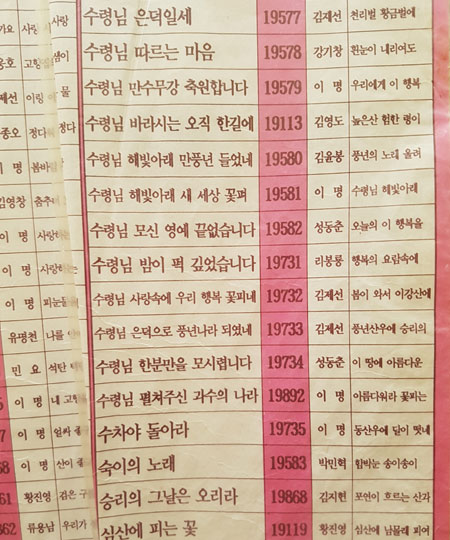 가요 사랑 사랑
수령님 은덕일세 19577 김제선 천리벌 황금벌에
웅호 고향
수령님 따르는 마음 19578 강기창 흰눈이 내리여도
제선 이랑 물
수령님 만수무강 축원합니다 19579 이 명 우리에게 이 행복
종오 정다 정다
수령님 바라시는 오직 한길에 19113 김영도 높은산 험한 령이
이 명 봄바
수령님 해빛아래 만풍년 들었네 19580 김윤봉 풍년의 노래 울려
김영창 춤추
수령님 해빛아래 새 세상 꽃펴 19581 이 명 수령님 해빛아래
이 명 사랑하
수령님 모신 영에 끝없습니다 19582 성동춘 오늘의 이 행복을
이 명 사랑하는
수령님 밤이 퍽 깊었습니다 19731 리봉룡 행복의 요람속에
이 명 피눈
수령님 사랑속에 우리 행복 꽃피네 19732 김제선 봄이 와서 이강산에
유명천 나를
수령님 은덕으로 풍년나라 되였네 19733 김제선 풍년산우에 승리의
민 요 석탄
수령님 한분만을 모시렵니다 19734 성동춘 이 땅에 아름다운
이 명 내 고
수령님 펼쳐주신 과수의 나라 19892 이 명 아름다워라 꽃피는
이 명 얼싸
수차야 돌아라 19735 이 명 동산우에 달이 떳네
이 명 산이
숙이의 노래 19583 박민혁 함박눈 송이송이
황진영 검은 구
승리의 그날은 오리라 19868 김지현 포연이 흐르는 산과
류용남 우리가
심산에 피는 꽃 19119 황진영 심산에 남몰래 피여